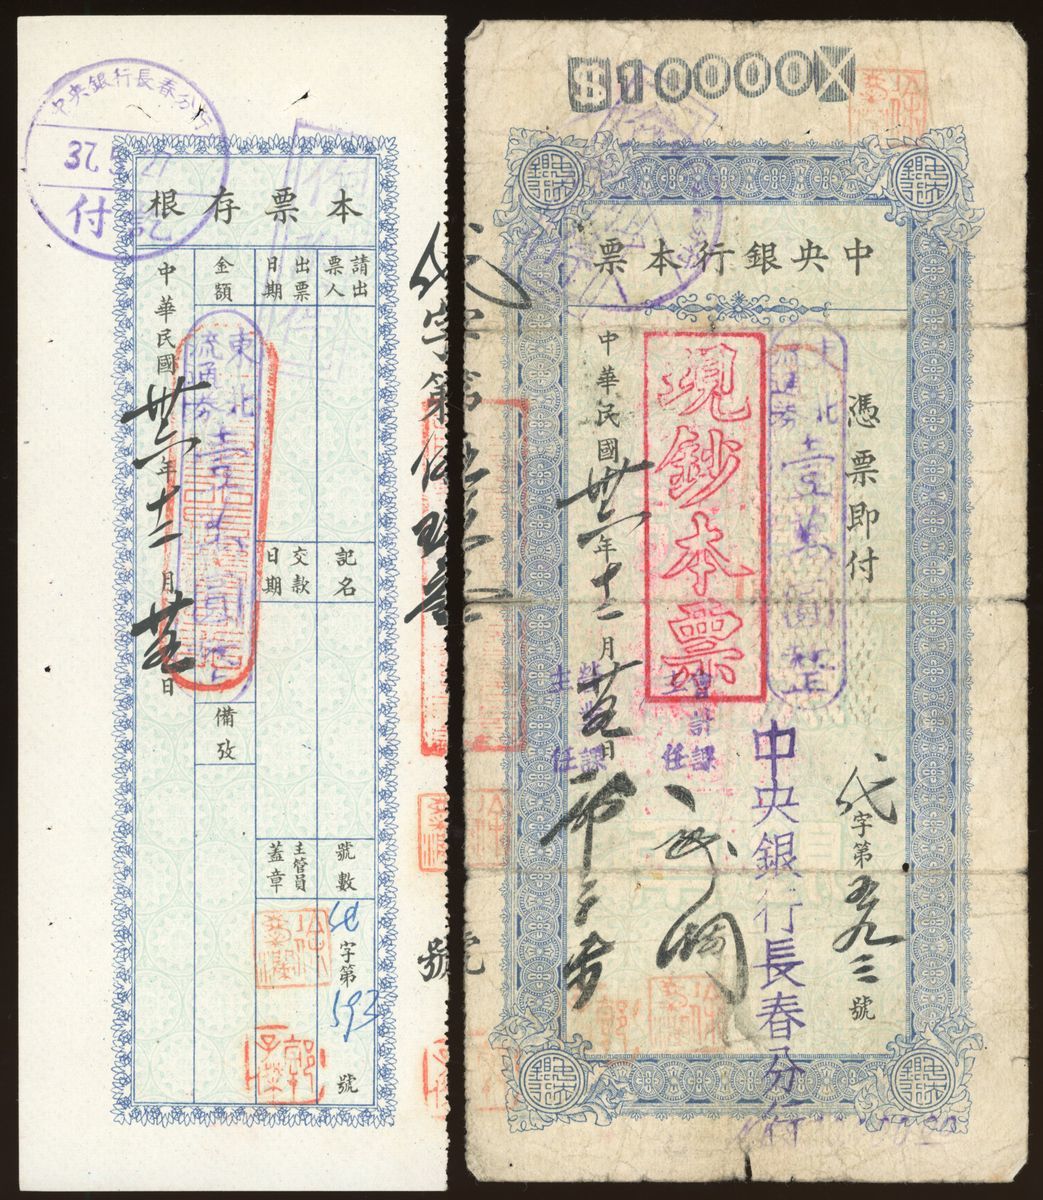 $10000
中央銀行本票
憑票即付
東北流通券
壹萬圓整
現鈔本票
中華民國卅六年十二月廿五日
代字第五九三號
中央銀行長春分行
會計課主任
主任
本票存根
請出票人
出票日期
金額
記名
交款日期
備攷
號數
主管員蓋章
字第593號
中華民國卅六年十二月廿五日
東北流通券
壹萬圓整
中央銀行長春分行
37. 5. 27
付訖
代字第伍玖叁號